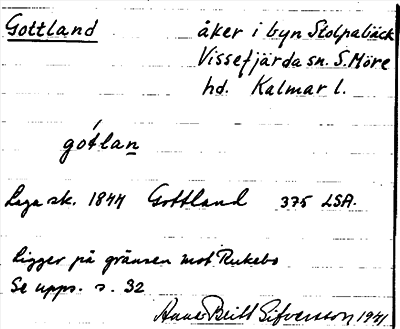 Gottland
åker i byn Stolpabäck
Vissefjärda sn. S. Möre
hd. Kalmar l.
gótlan
Laga sk. 1844 Gottland 375 LSA.
ligger på gränsen mot Rukebo
Se upps. s. 32
Anna-Britt Sifversson 1941